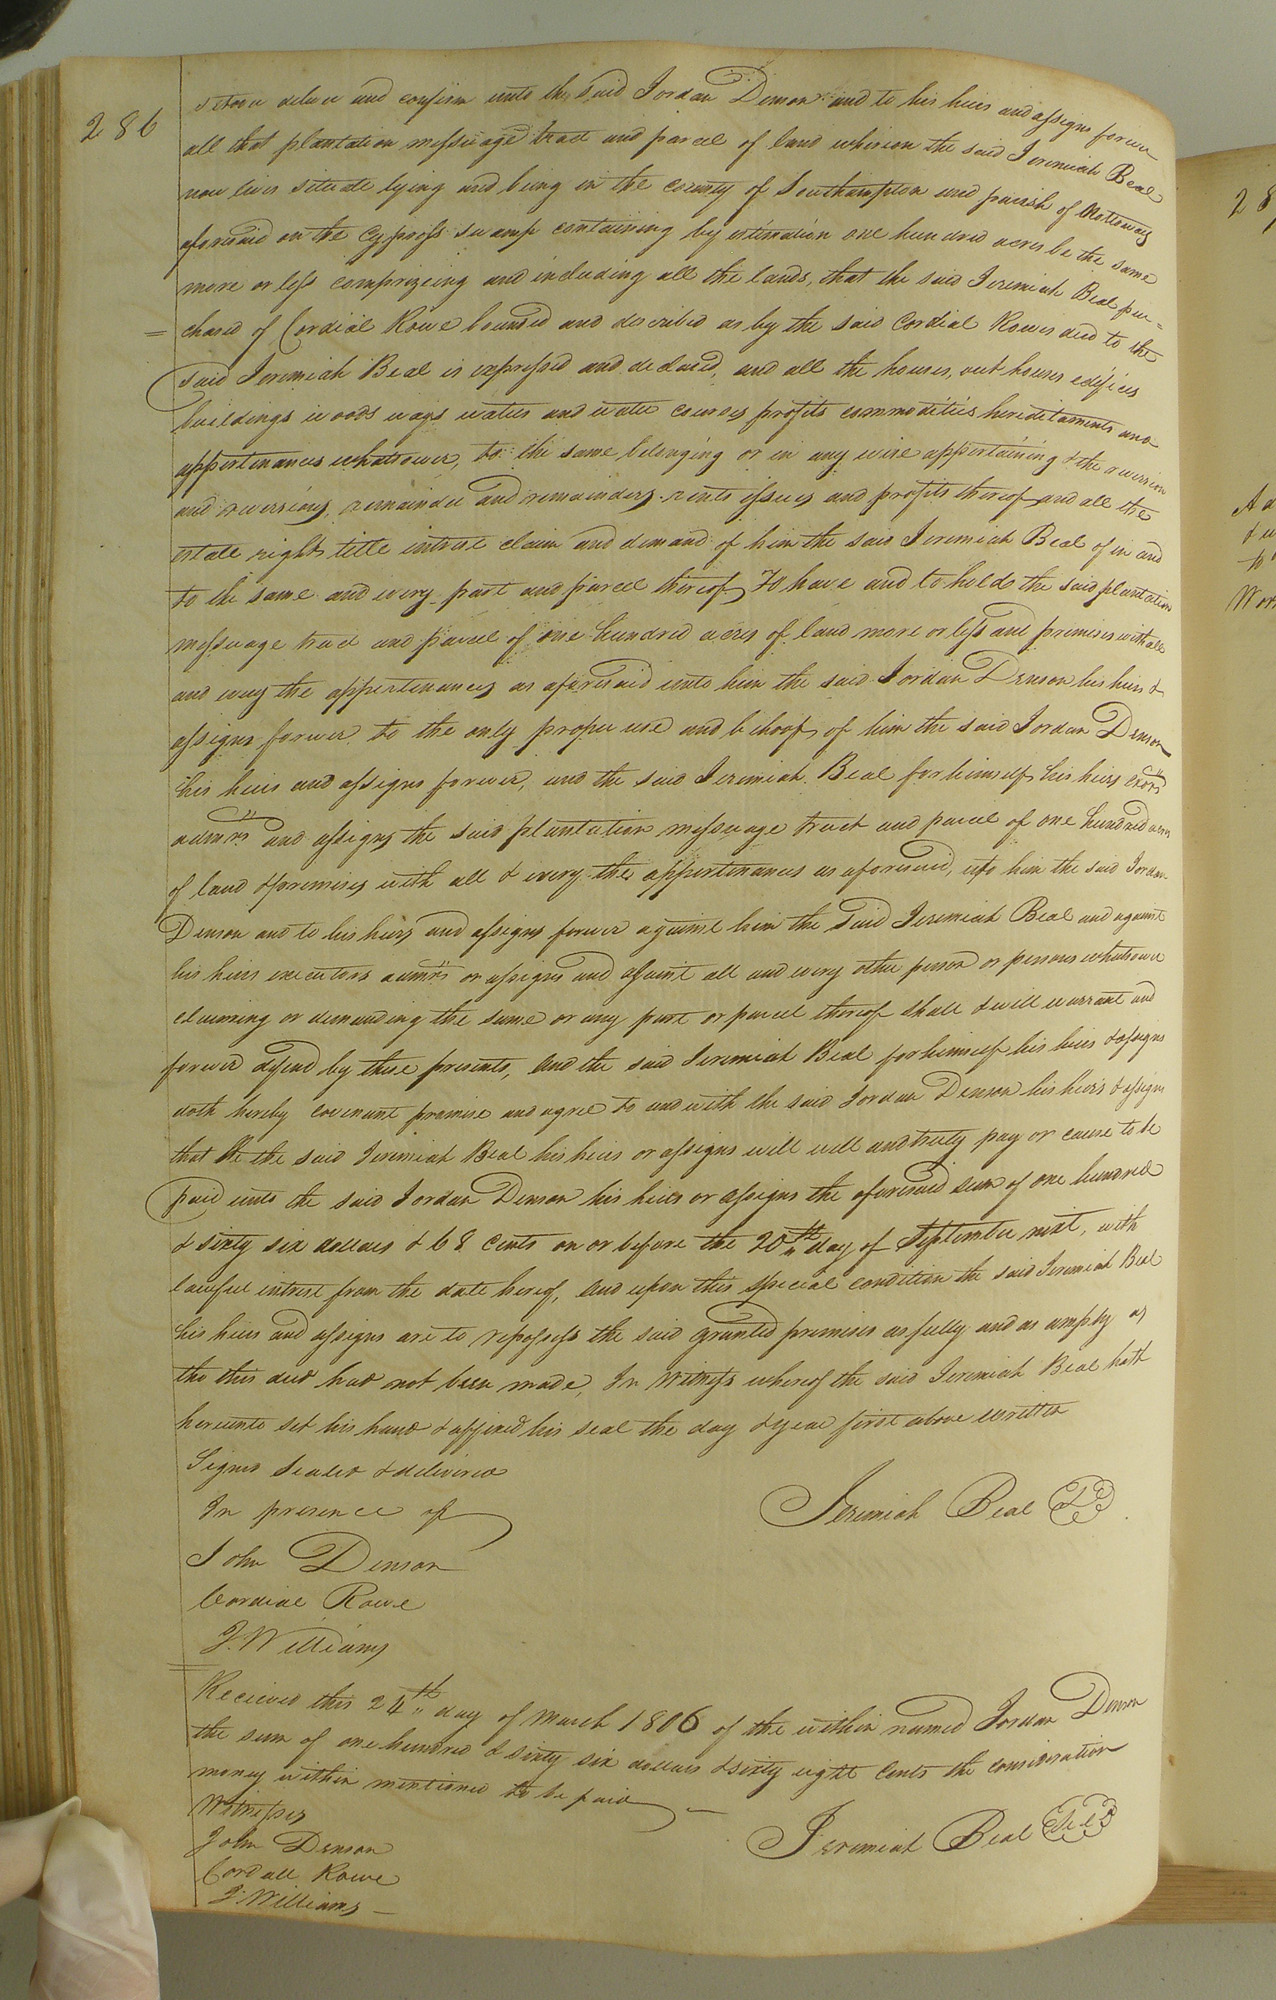 286
deliver and confirm unto the said Jordan Denson and to his heirs and assigns forever
all that plantation messuage tract and parcel of land whereon the said Jeremiah Beal
now lives situate lying and being in the county of Southampton and parish of Nottoway
aforesaid on the Cypress swamp containing by estimation one hundred acres be the same
more or less comprizeing and including all the lands, that the said Jeremiah Beal pur=
chased of Cordial Rowe bounded and described as by the said Cordial Rowes deed to the
said Jeremiah Beal is expressed and declared, and all the houses, out houses edifices
buildings woods ways waters and water courses profits commodities hereditaments and
appertenances whatsoever, to the same belonging or in any wise appertaining & the reversion
and reversions, remainder and remainders rents issues and profits thereof and all the
estate right title intrest claim and demand of him the said Jeremiah Beal of in and
to the same and every part and parcel thereof To have and to hold the said plantation
messuage tract and parcel of one hundred acres of land more or less and premises with all
and every the appertenances as aforesaid unto him the said Jordan Denson his heirs &
assigns forever to the only proper use and behoof of him the said Jordan Denson
his heirs and assigns forever, and the said Jeremiah Beal for himself his heirs exors
admrs and assigns the said plantation messuage tract and parcel of one hundred acres
of land & premises with all & every the appertenances as aforesaid, unto him the said Jordan
Denson and to his heirs and assigns forever against him the said Jeremiah Beal and against
his heirs executors admrs or assigns and against all and every other person or persons whatsoever
claiming or demanding the same or any part or parcel thereof shall & will warrant and
forever defend by these presents, And the said Jeremiah Beal for himself his heirs & assigns
doth hereby covenant promise and agree to and with the said Jordan Denson his heirs & assigns
that he the said Jeremiah Beal his heirs or assigns will well and truly pay or cause to be
paid unto the said Jordan Denson his heirs or assigns the aforesaid sum of one hundred
& sixty six dollars & 68 cents on or before the 20th day of September next, with
lawfull intrest from the date hereof, And upon this special condition the said Jeremiah Beal
his heirs and assigns are to repossess the said granted premises as fully and as amply as
tho this deed had not been made, In Witness whereof the said Jeremiah Beal hath
hereunto set his hand & affixed his seal the day & year first above written
Signed Sealed & delivered
In presence of
Jeremiah Beal
John Denson
Cordial Rowe
J. Williams
Received this 24th day of March 1806 of the within named Jordan Denson
the sum of one hundred & sixty six dollars & sixty eight Cents the consideration
money within mentioned to be paid
Witnesses
Jeremiah Beal
John Denson
Cordall Rowe
J. Williams
28